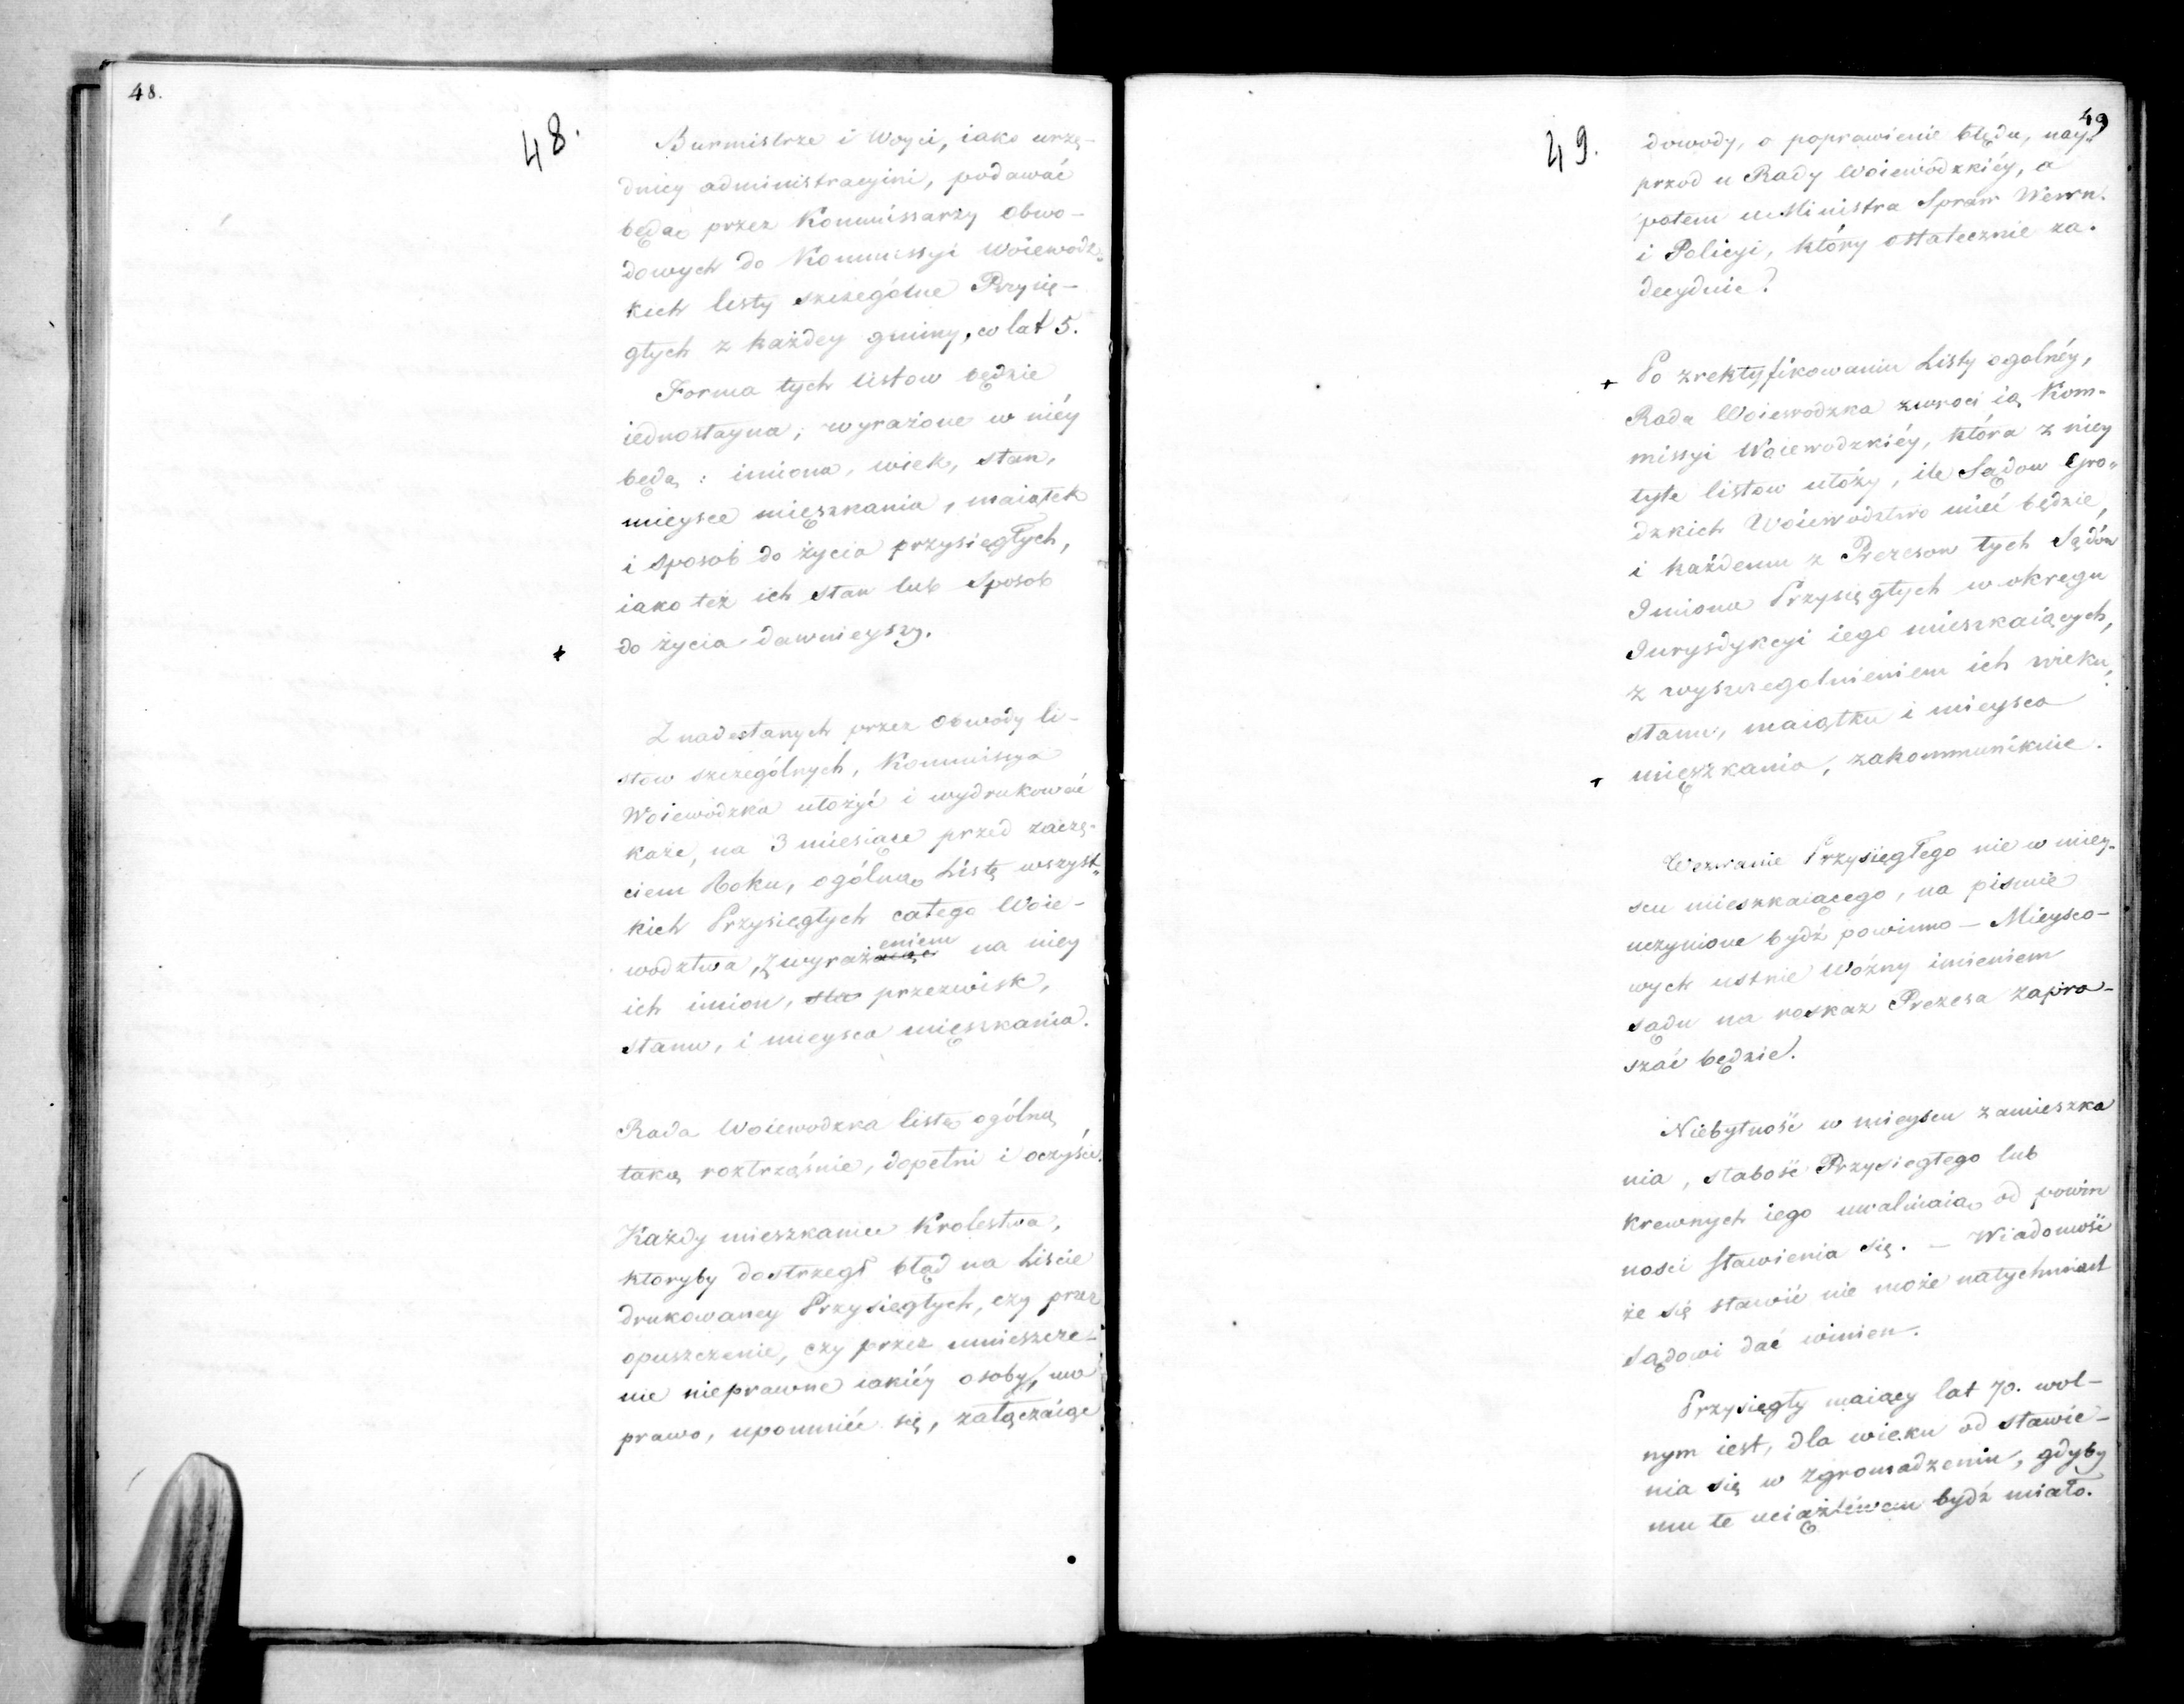 48.
48.
Burmistrze i Woyci, iako urzę-
dnicy administracyini, podawać
będą przez Kommissarzy Obwo-
dowych do Kommissyi Woiewódz„
kich listy szczególne Przysię-
głych z każdey gminy, co lat 5.
Forma tych listow będzie
iednostayna; wyrażone w niéy
będą: imiona, wiek, stan,
mieysce mieszkania, maiątek
i sposob do życia przysięgłych,
iako też ich stan lub sposob
do życia dawnieyszy.
+
Z nadesłanych przez Obwody li-
stow szczególnych, Kommissya
Woiewódzka ułożyć i wydrukować
każe, na 3 miesiące przed zaczę-
ciem Roku, ogólną Listę wszyst„
kich Przysięgłych całego Woie-
wodztwa, z wyrażaiąc eniem na niey
ich imion, sta przezwisk,
stanu, i mieysca mieszkania.
Rada Woiewodzka listę ogólną
taką roztrząśnie, dopełni i oczyści.
Każdy mieszkaniec Krolestwa,
ktoryby dostrzegł błąd na Liście
drukowaney Przysięgłych, czy przez
opuszczenie, czy przez umieszcze-
nie nieprawne iakiéy osoby, ma
prawo, upomnieć się, załączaiąc
49
49.
dowody, o poprawienie błędu, nay„
przod u Rady Woiewodzkiéy, a
potem u Ministra Spraw Wewn.
i Policyi, który ostatecznie za.
decyduie.
+ Po zrektyfikowaniu Listy ogolnéy,
Rada Woiewodzka zwroci ią Kom-
missyi Woiewodzkiéy, która z niey
tyle listow ułoży, ile Sądow Gro„
dzkich Woiewodztwo mieć będzie,
i każdemu z Prezesow tych Sądów
Imiona Przysięgłych w okręgu
Iurysdykcyi iego mieszkaiących,
z wyszczegolnieniem ich wieku,
stanu, maiątku i mieysca
+ mieszkania, zakommunikuie.
Wezwanie Przysięgłego nie w miey-
scu mieszkaiącego, na pismie
uczynione bydź powinno — Mieysco-
wych ustnie Woźny imieniem
sądu na roskaz Prezesa zapra-
szać będzie.
Niebytność w mieyscu zamieszka
nia, słabość Przysięgłego lub
krewnych iego uwalniaią od powin
nosci stawienia się. — Wiadomość
że się stawić nie może natychmiast
Sądowi dać winien.
Przysięgły maiący lat 70. wol-
nym iest, dla wieku od stawie-
nia się w zgromadzeniu, gdyby
mu te uciążliwem bydź miało.